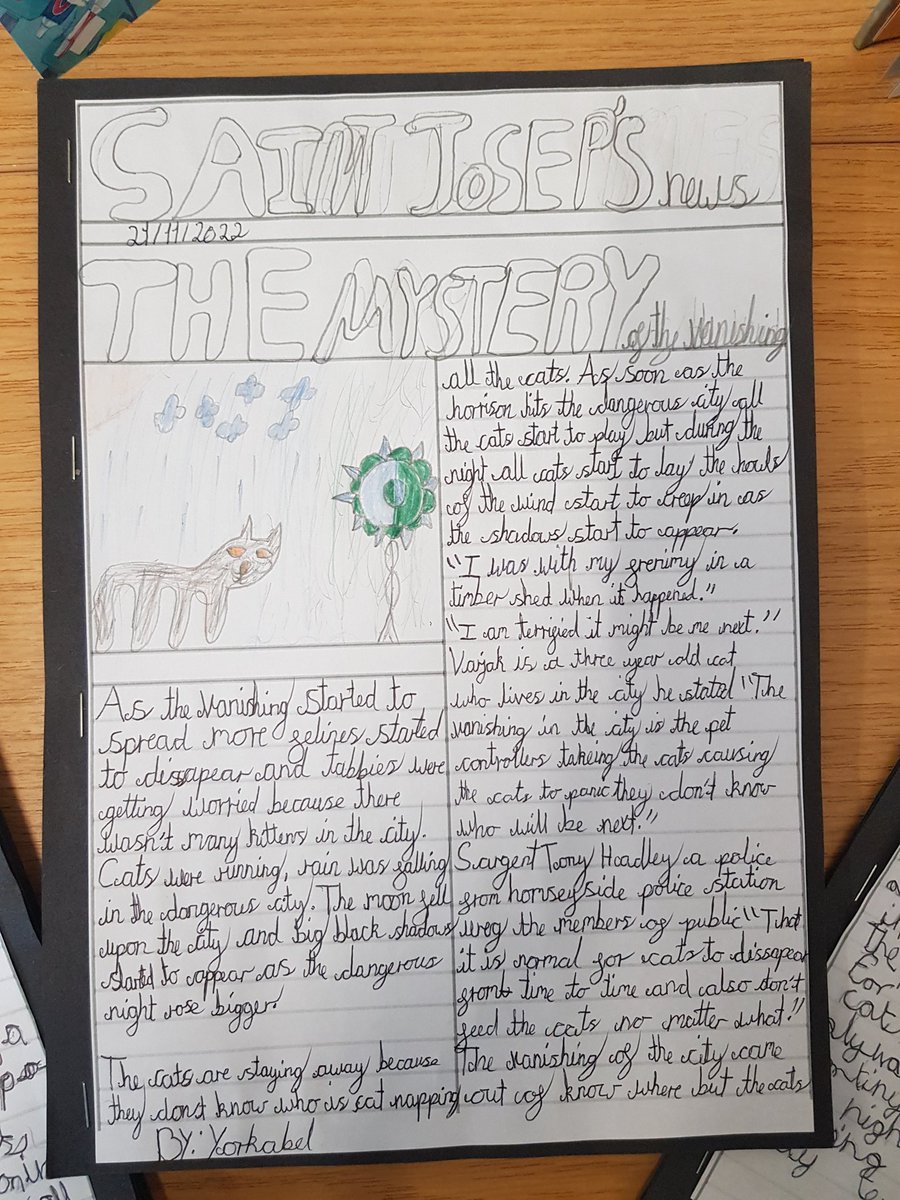 SAINT JOSEP'S news
21/11/2022
THE MYSTERY of the Vanishing
As the Vanishing started to
spread more felines started
to dissapear and tabbies were
getting worried because there
wasn't many kittens in the city.
Cats were running, rain was falling
in the dangerous city. The moon fell
upon the city and big black shadows
started to appear as the dangerous
night rose bigger!
The cats are staying away because
they dont know who is cat napping
all the cats. As soon as the
horrison hits the dangerous city all
the cats start to play but during the
night all cats start to lay the howls
of the wind start to creep in as
the shadows start to appear.
"I was with my frenimy in a
timber shed when it happened."
"I am terrified it might be me next."
Varjak is a three year old cat
who lives in the city he stated "The
vanishing in the city is the pet
controllers takeing the cats causing
the cats to panic they don't know
who will be next."
Sargent Tony Hoadley a police
from hornsey side police station
ureg the members of public "That
it is normal for cats to dissapear
from time to time and also don't
feed the cats no matter what!"
The vanishing of the city came
out of know where but the cats
BY: Yorkabel